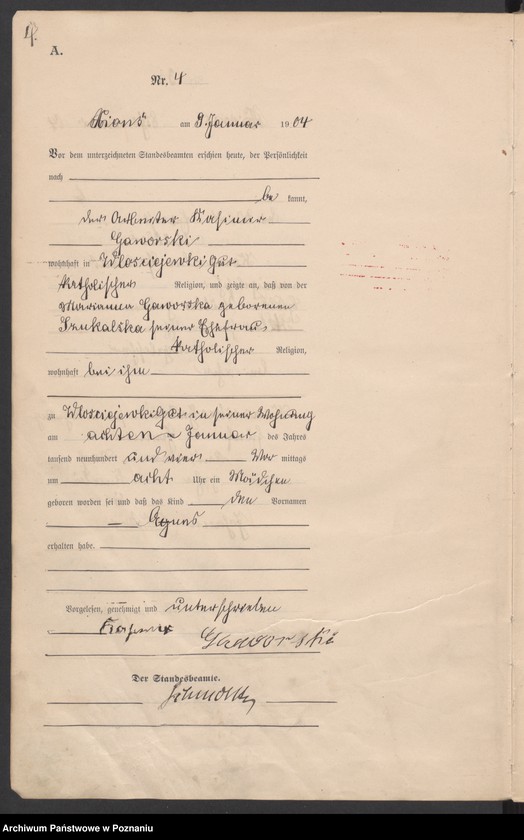 4.
A.
Nr. 4
Xions am 9. Januar 1904
Vor dem unterzeichneten Standesbeamten erschien heute, der Persönlichkeit
nach
be kannt,
der Arbeiter Kasimir
Gaworski
wohnhaft in Wlosciejewki Gut
katholischer Religion, und zeigte an, daß von der
Marianna Gaworska geborenen
seiner Ehefrau,
katholischer Religion,
wohnhaft bei ihm
zu Wlosciejewki Gut in seiner Wohnung
am achten Januar des Jahres
tausend neunhundert und vier Vor mittags
um acht Uhr ein Mädchen
geboren worden sei und daß das Kind den Vornamen
Agnes
erhalten habe.
Vorgelesen, genehmigt und unterschrieben
Kasimir Gaworski
Der Standesbeamte.
Archiwum Państwowe w Poznaniu